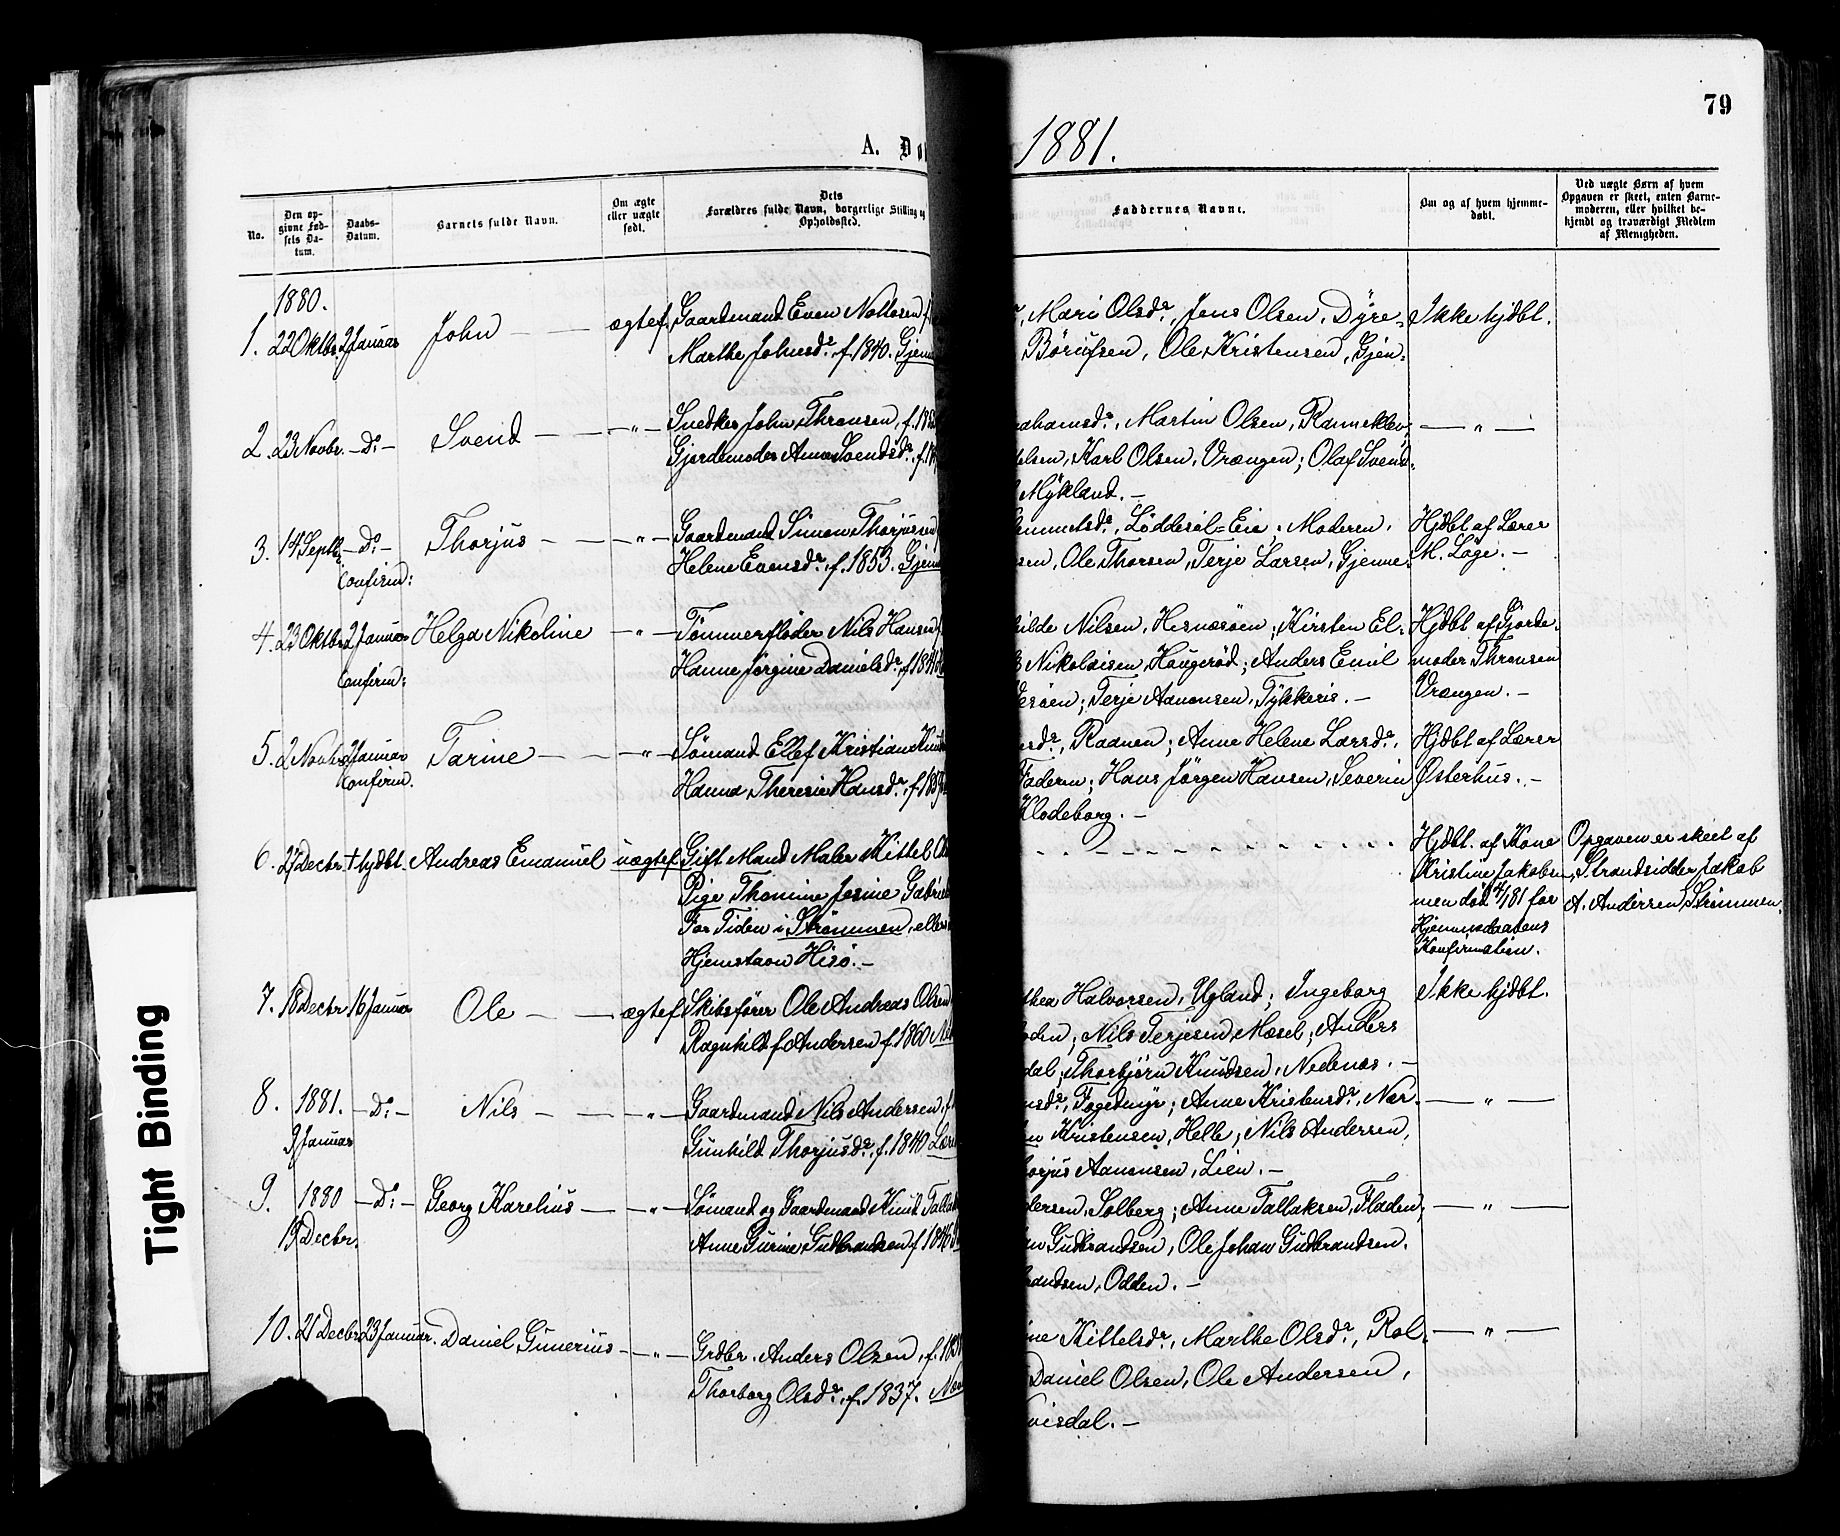 79
A. Dø
1881.
No.
Den op-
givne Fød-
sels Da-
tum.
Daabs-
Datum.
Barnets fulde Navn.
Om ægte
eller uægte
født.
Dets
Forældres fulde Navn, borgerlige Stilling og
Opholdssted.
Faddernes Navne.
Om og af hvem hjemme-
døbt.
Ved uægte Børn af hvem
Opgaven er skeet, enten Barne-
moderen, eller hvilket be-
kjendt og troværdigt Medlem
af Menigheden.
1880.
1. 22 Oktbr. 2 Januar John — — ægtef. Gaardmand Even
Marthe Johnsd. f. 1840.
, Mari Olsd., Jens Olsen, Dyre-
Børufsen, Ole Kristensen, Gjen-
Ikke hjdbt.
2. 23 Novbr. — Do — Svend — — " — Snedker John Thronsen, f. 185
Gjordemoder Anne Svendsd., f. 18
ahamsd., Martin Olsen, Ranneklev;
elsen, Karl Olsen, Vrængen; Olaf Svend-
Mykland. —
— " —
3. 14 Septbr. — Do — Thorjus — — " — Gaardmand Simon Thorjussen
Confirm:
Helene Evensd., f. 1853.
mmetsd., Løddesøl-Eie; Moderen,
sen, Ole Thorsen, Terje Larsen, Gjenne-
Hjdbt af Lærer
M. Løge. —
4. 23 Oktbr. 2 Januar Helga Nikoline — " — Tømmerfløder Nils Hansen
Confirm:
Hanne Jørgine Danielsd., f. 184
hilde Nilsen, Hisnæsøen; Kirsten El-
Nikolaisen, Haugerød; Anders Emil
esøen; Terje Aanonsen, Tykkeris. —
Hjdbt af Gjorde-
moder Thronsen
Vrængen. —
5. 2 Novbr. 2 Januar Tarine — — " — Sømand Ellef Kristian Knu
Confirm.
Hanna Theresie Hansd., f. 185
sd., Raanen; Anne Helene Larsd.,
Faderen; Hans Jørgen Hansen, Severin
Klodeborg. —
Hjdbt af Lærer
Østerhus. —
6. 27 Decbr. † hjdbt. Andreas Emanuel uægtef. Gift Mand Maler Kittel
Pige Thomine Josine Gabrie
For Tiden i Strømmen, eller
Hjemstavn Hisø. —
Hjdbt. af Kone
Kristine Jakobsen,
men død 4/1 81 før
Hjemmedaabens
Konfirmation.
Opgaven er skeet af
Strandsidder Jakob
A. Andersen, Strømmen.
7. 18 Decbr. 16 Januar Ole — — ægtef. Skibsfører Ole Andreas Olsen
Ragnhild f. Andersen f. 1860
thea Halvorsen, Ugland; Ingeborg
oden; Nils Terjesen, Mæsel; Anders
dal; Thorbjørn Knudsen, Nedenæs. —
Ikke hjdbt.
8. 1881. — Do — Nils — — " — Gaardmand Nils Andersen, f.
9 Januar
Gunhild Thorjusd., f. 1840
sd., Fogedmyr; Anne Kristensd., Nær-
Kristensen, Helle; Nils Andersen,
orjus Aanonsen, Lien. —
— " —
9. 1880 — Do — Georg Karelius — — " — Sømand og Gaardmand Knud Tallak
19 Decbr.
Anne Gurine Gudbrandsen f. 1846
dersen, Solberg; Anne Tallaksen, Fladen;
Gudbrandsen, Ole Johan Gudbrandsen.
brandsen, Odden. —
— " —
10. 21 Decbr. 23 Januar. Daniel Gunerius — " — Grdbr. Anders Olsen, f. 183
Thorborg Olsd., f. 1837.
ne Kittelsd., Marthe Olsd., Rol-
Daniel Olsen, Ole Andersen,
visdal. —
— " —
Tight Binding